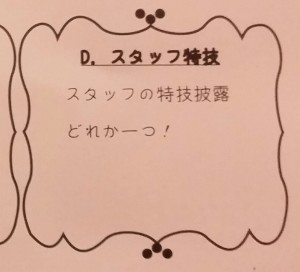 D. スタッフ特技
スタッフの特技披露
どれか一つ！